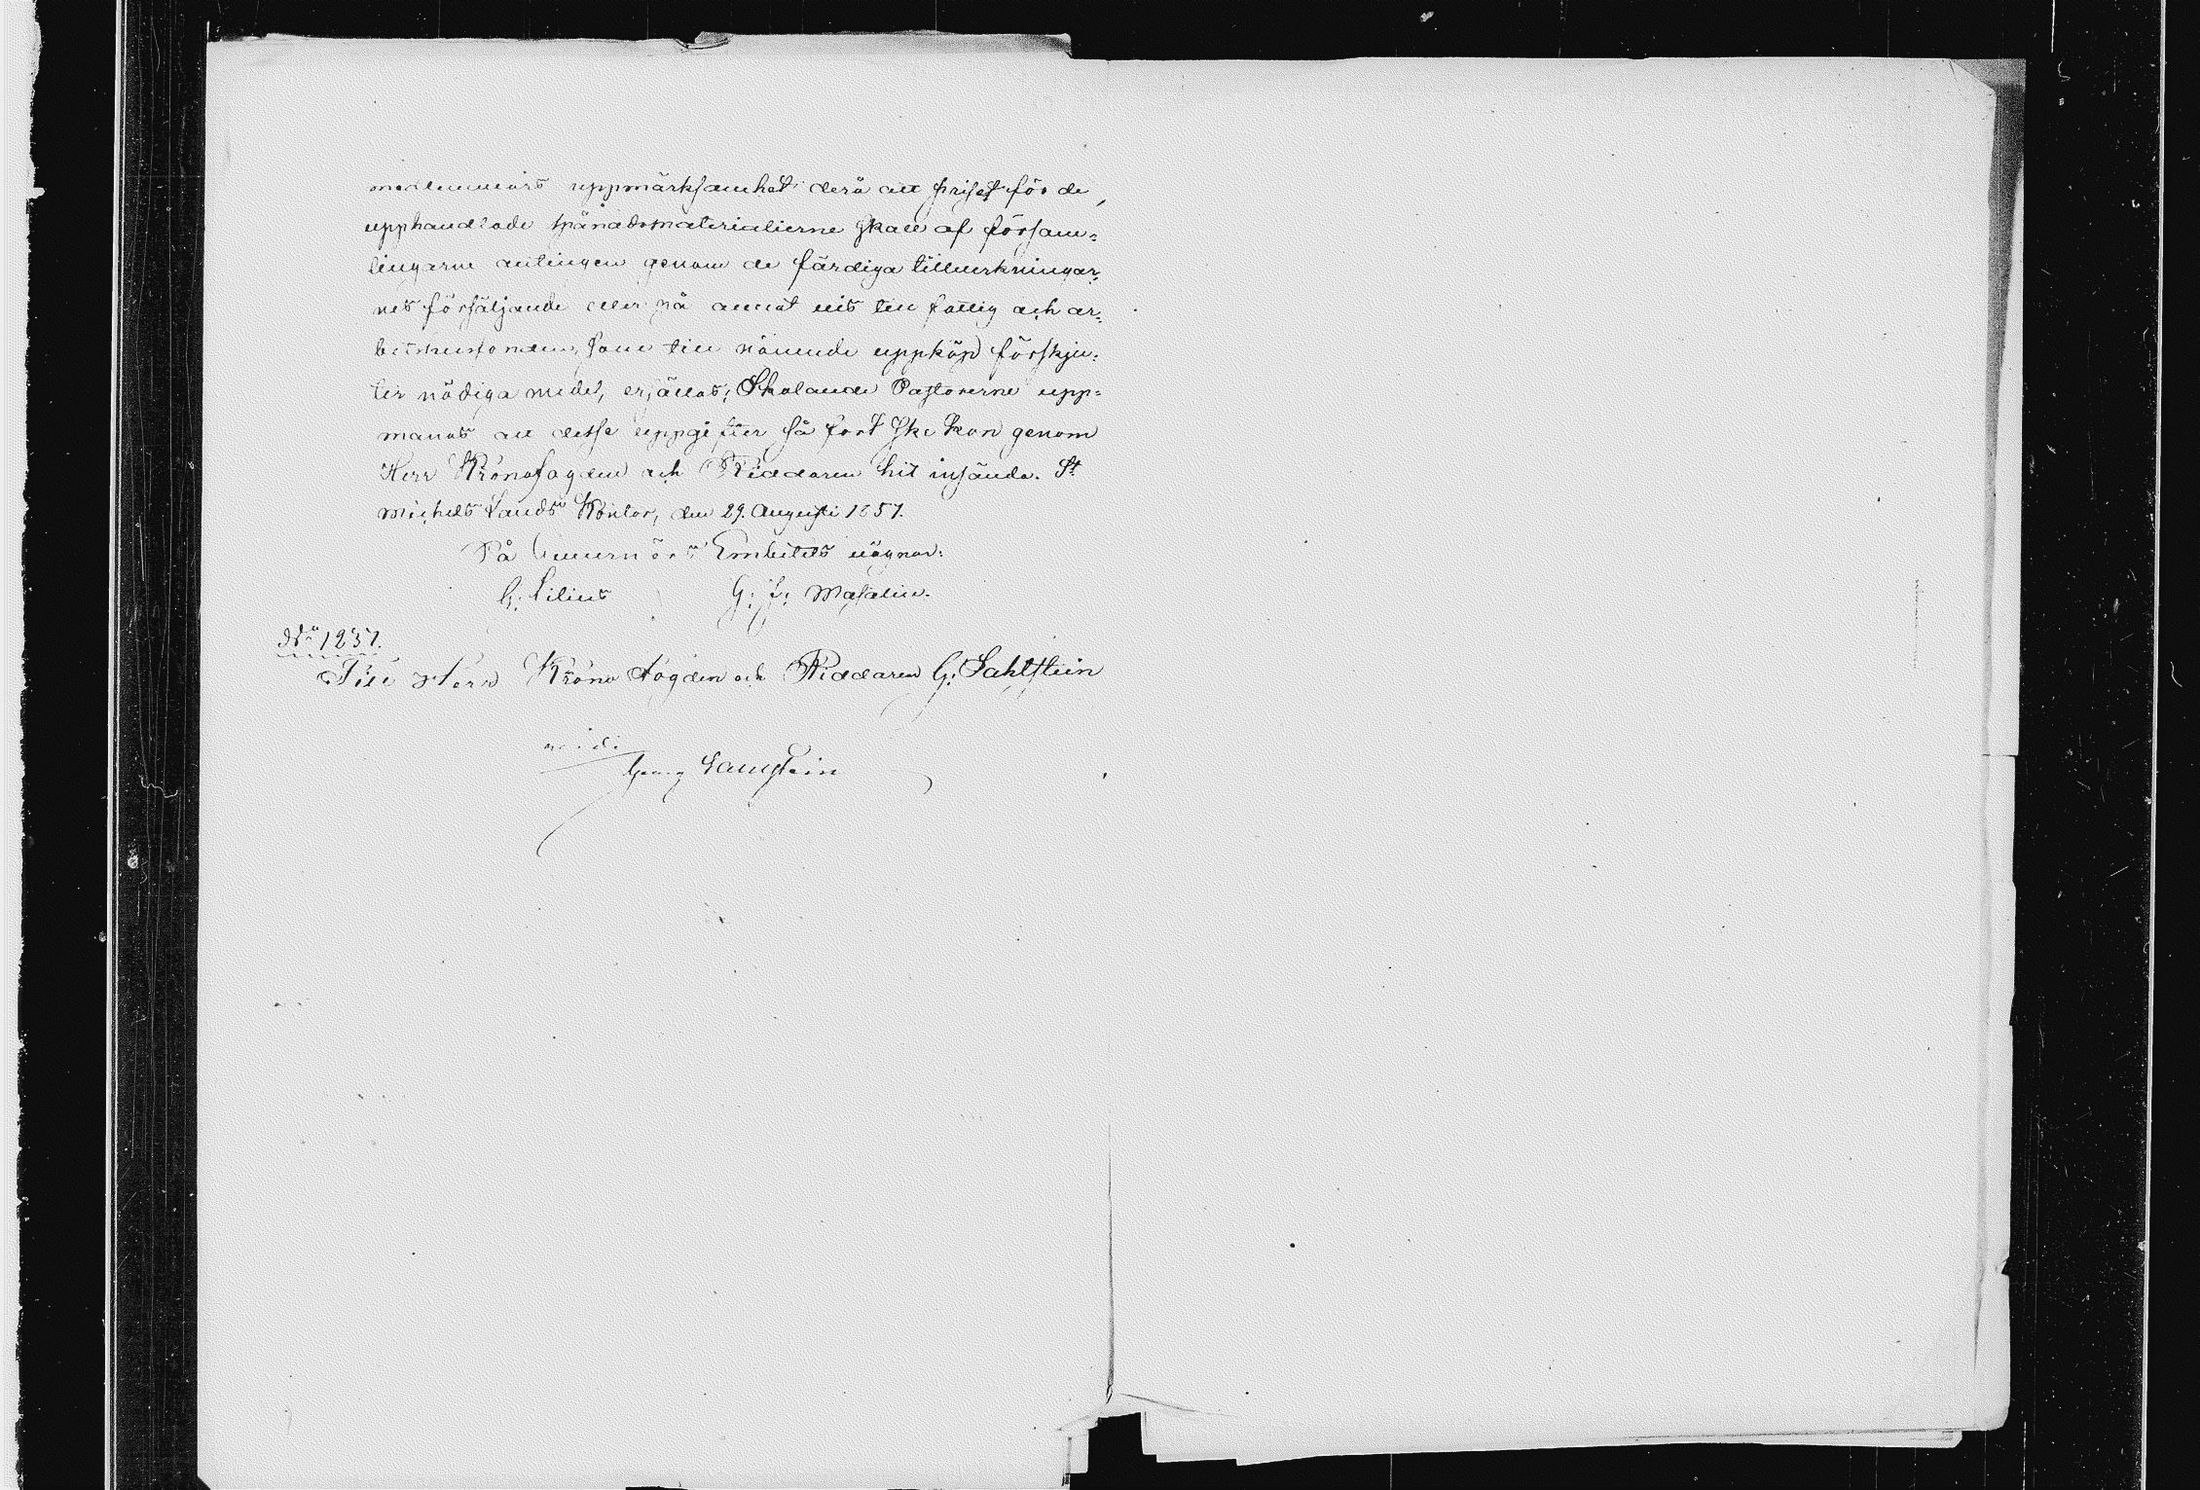 medlemmars uppmärksamhet derå att priset för de
upphandlade spånadsmaterialierne skall af försam=
lingarne antingen genom de färdiga tillverkningar=
nes försäljande eller på annat vis till fattig och ar=
betshusfonden, som till nämnde uppköp förskju=
ter nödiga medel, ersättas; Skolande Pastorerne upp=
manas att dessa uppgifter så fort ske kan genom
Herr Kronofogden och Riddaren hit insända. St
Michels Lands Kontor, den 29. Augusti 1857.
På Guvernörs Embetets vägnar:
G: Lilius G: F: Masalin.
No 1237.
Till Herr Krono Fogden och Riddaren G: Sahlstein
vidi
Georg Sahlstein